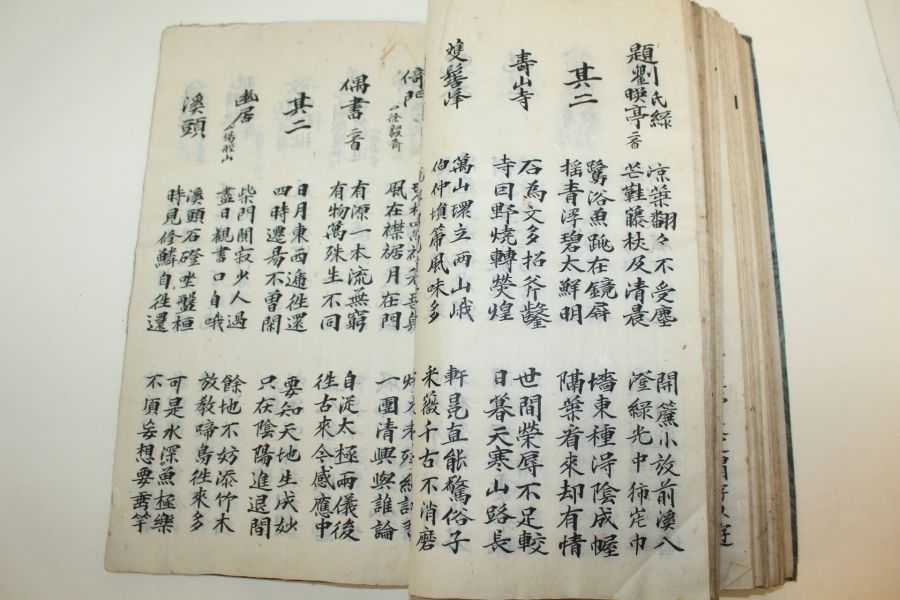 題劉氏綠暎亭二首
凉葉翻々不受塵 開簾小放前溪入
芒鞋籐杖及清晨 澄綠光中巾
其二
鷺浴魚跳在鏡屛 墻東種淂陰成幄
揺青浮碧太鮮明 隔葉看來却有情
壽山寺
石為文多招斧鑿 世間榮辱不足較
寺因野燒轉熒煌 日暮天寒山路長
雙髻峰
萬山環立兩山峨 軒冕直能驚俗子
伯仲塤箎風味多 采薇千古不消磨
倚門 徐毅齋
風在襟裾月在門 一團清興與誰論
偶書 二首
有源一本流無窮 自従太極兩儀後
有物萬殊生不同 徃古來今感應中
其二
日月東西逓徃還 要知天地生成妙
四時還昜不曾閑 只在陰陽進退間
幽居 楊龜山
柴門閴寂少人過 餘地不妨添竹木
盡日觀書口自哦 放教啼鳥徃來多
溪頭
溪頭石磴坐盤桓 可是水深魚極樂
時見修鱗自徃還 不須妄想要垂竿